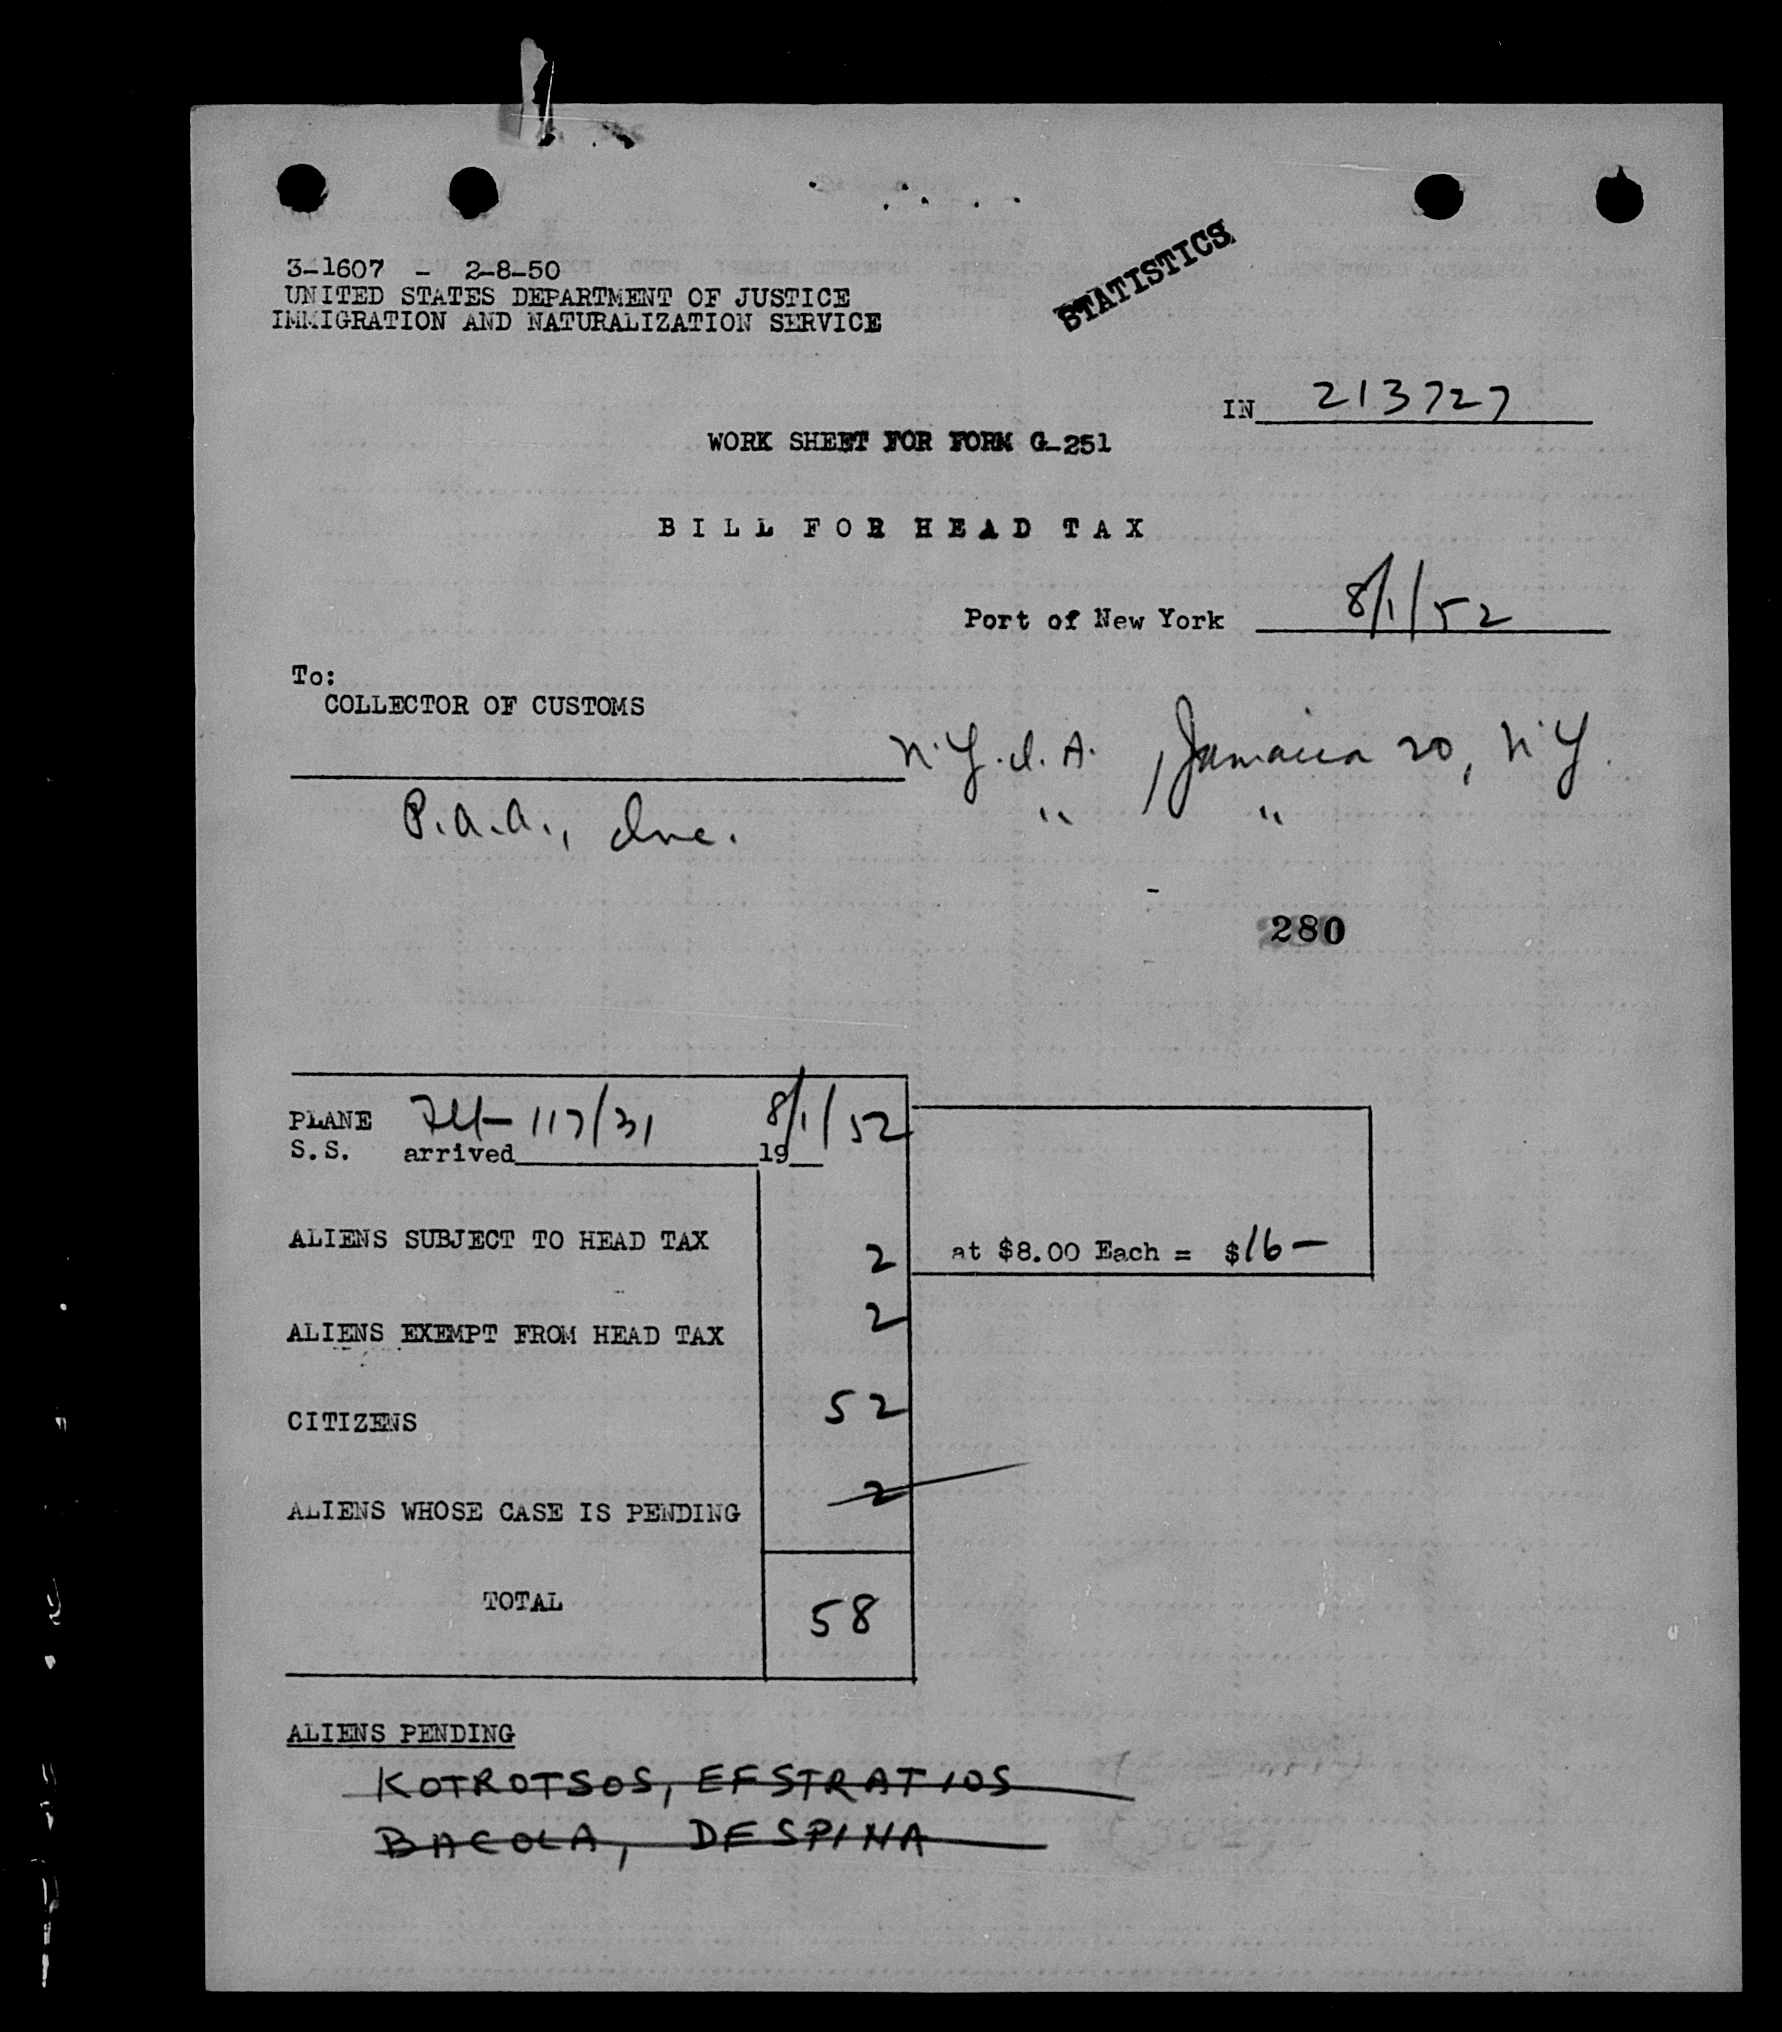 STATISTICS
3-1607 - 2-8-50
UNITED STATES DEPARTMENT OF JUSTICE
IMMIGRATION AND NATURALIZATION SERVICE
IN 213727
WORK SHEET FOR FORM G-251
BILL FOR HEAD TAX
Port of New York 8/1/52
To:
COLLECTOR OF CUSTOMS
N.Y.I.A. , Jamaica 20, N.Y.
P.A.A., Inc. " "
280
PLANE Flt- 117/31 8/1/52
S.S. arrived 19
ALIENS SUBJECT TO HEAD TAX 2 at $8.00 Each = $16-
ALIENS EXEMPT FROM HEAD TAX 2
CITIZENS 52
ALIENS WHOSE CASE IS PENDING 2
TOTAL 58
ALIENS PENDING
KOTROTSOS, EFSTRATIOS
BACOLA, DESPINA